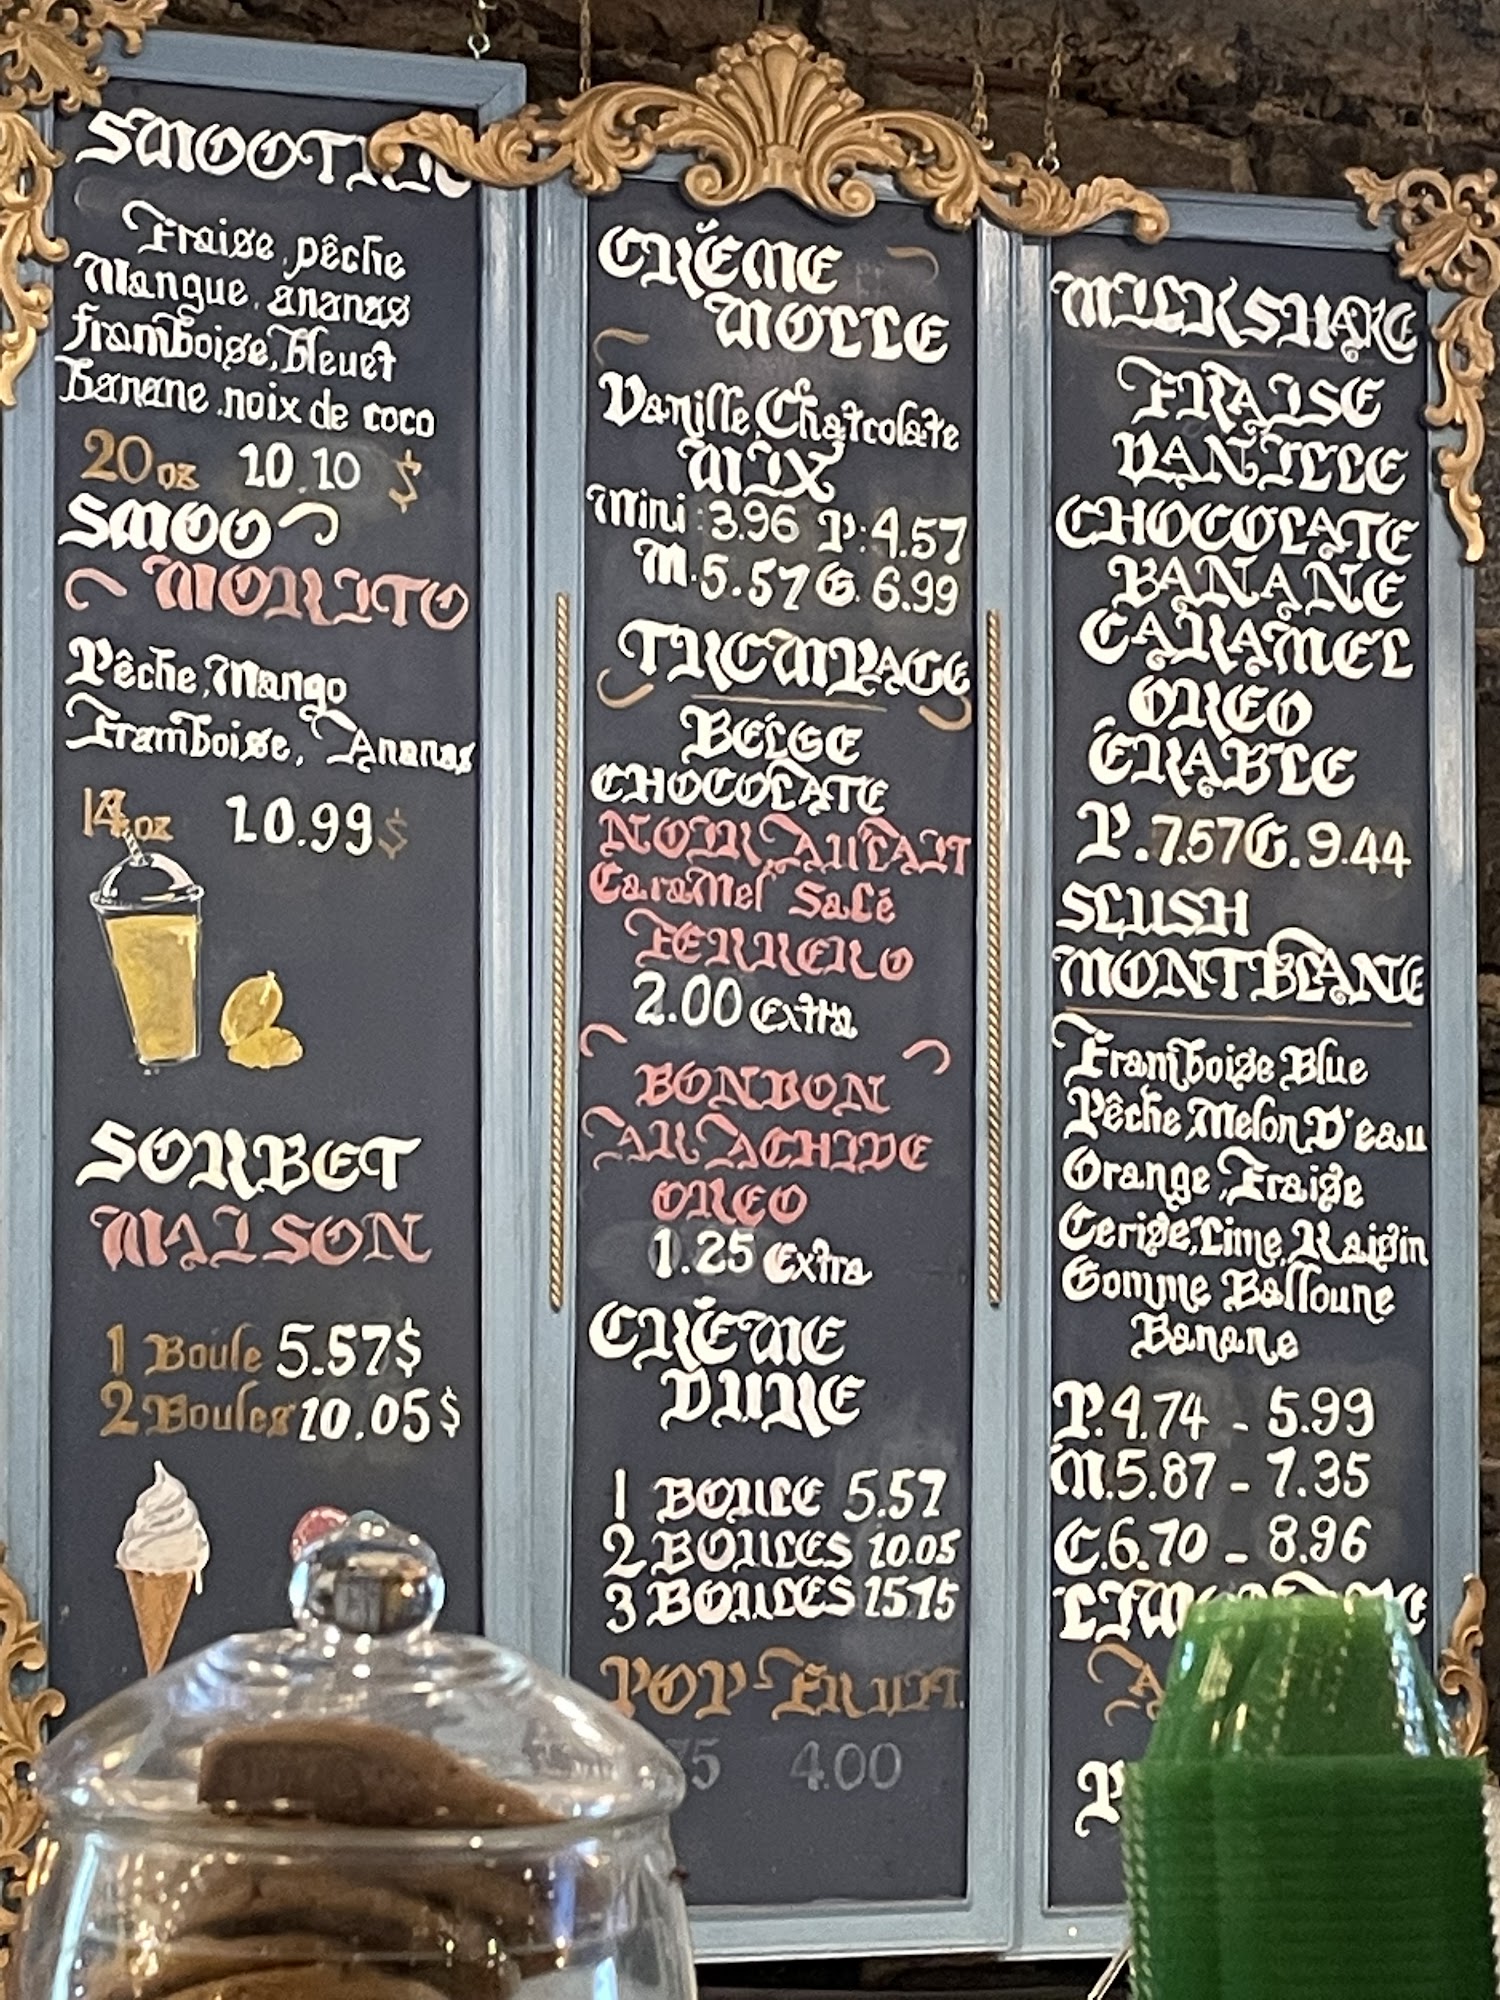 SMOOTHIE
Fraise, pêche
Mangue, ananas
framboise, bleuet
Banane, noix de coco
20 oz 10.10 $
SMOO
MORITO
Pêche, Mango
Framboise, Ananas
14 oz 10.99 $
SORBET
MAISON
1 Boule 5.57$
2 Boules 10.05$
CRÉME
MOLLE
Vanille, Chatcolate
MIX
Mini: 3.96 P: 4.57
M. 5.57 G. 6.99
TREMPAGE
BÉLGE
CHOCOLATE
NOIR, AU LAIT
Caramel Salé
FERRERO
2.00 Extra
BONBON
ARACHIDE
OREO
1.25 Extra
CRÉME
DURE
1 BOULE 5.57
2 BOULES 10.05
3 BOULES 15.15
POP-
4.00
MILKSHAKE
FRAISE
VANILLE
CHOCOLATE
BANANE
CARAMEL
OREO
ÉRABLE
P. 7.57 G. 9.44
SLUSH
MONTBLANC
Framboise Blue
Pêche, Melon D'eau
Orange, Fraise
Cerise, Lime, Raisin
Gomme Balloune
Banane
P. 4.74 - 5.99
M. 5.87 - 7.35
C. 6.70 - 8.96